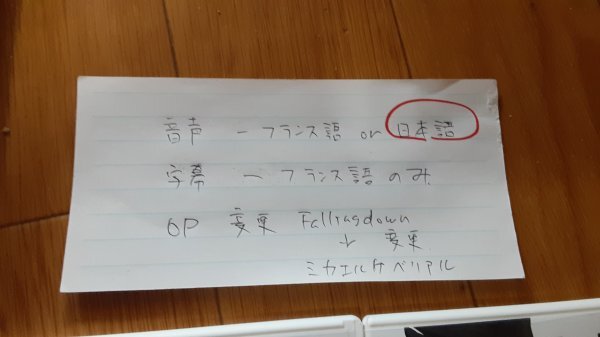 音声 ー フランス語 or 日本語
字幕 ー フランス語のみ
OP 変更 Fallingdown
↓ 変更
ミカエルケベリアル